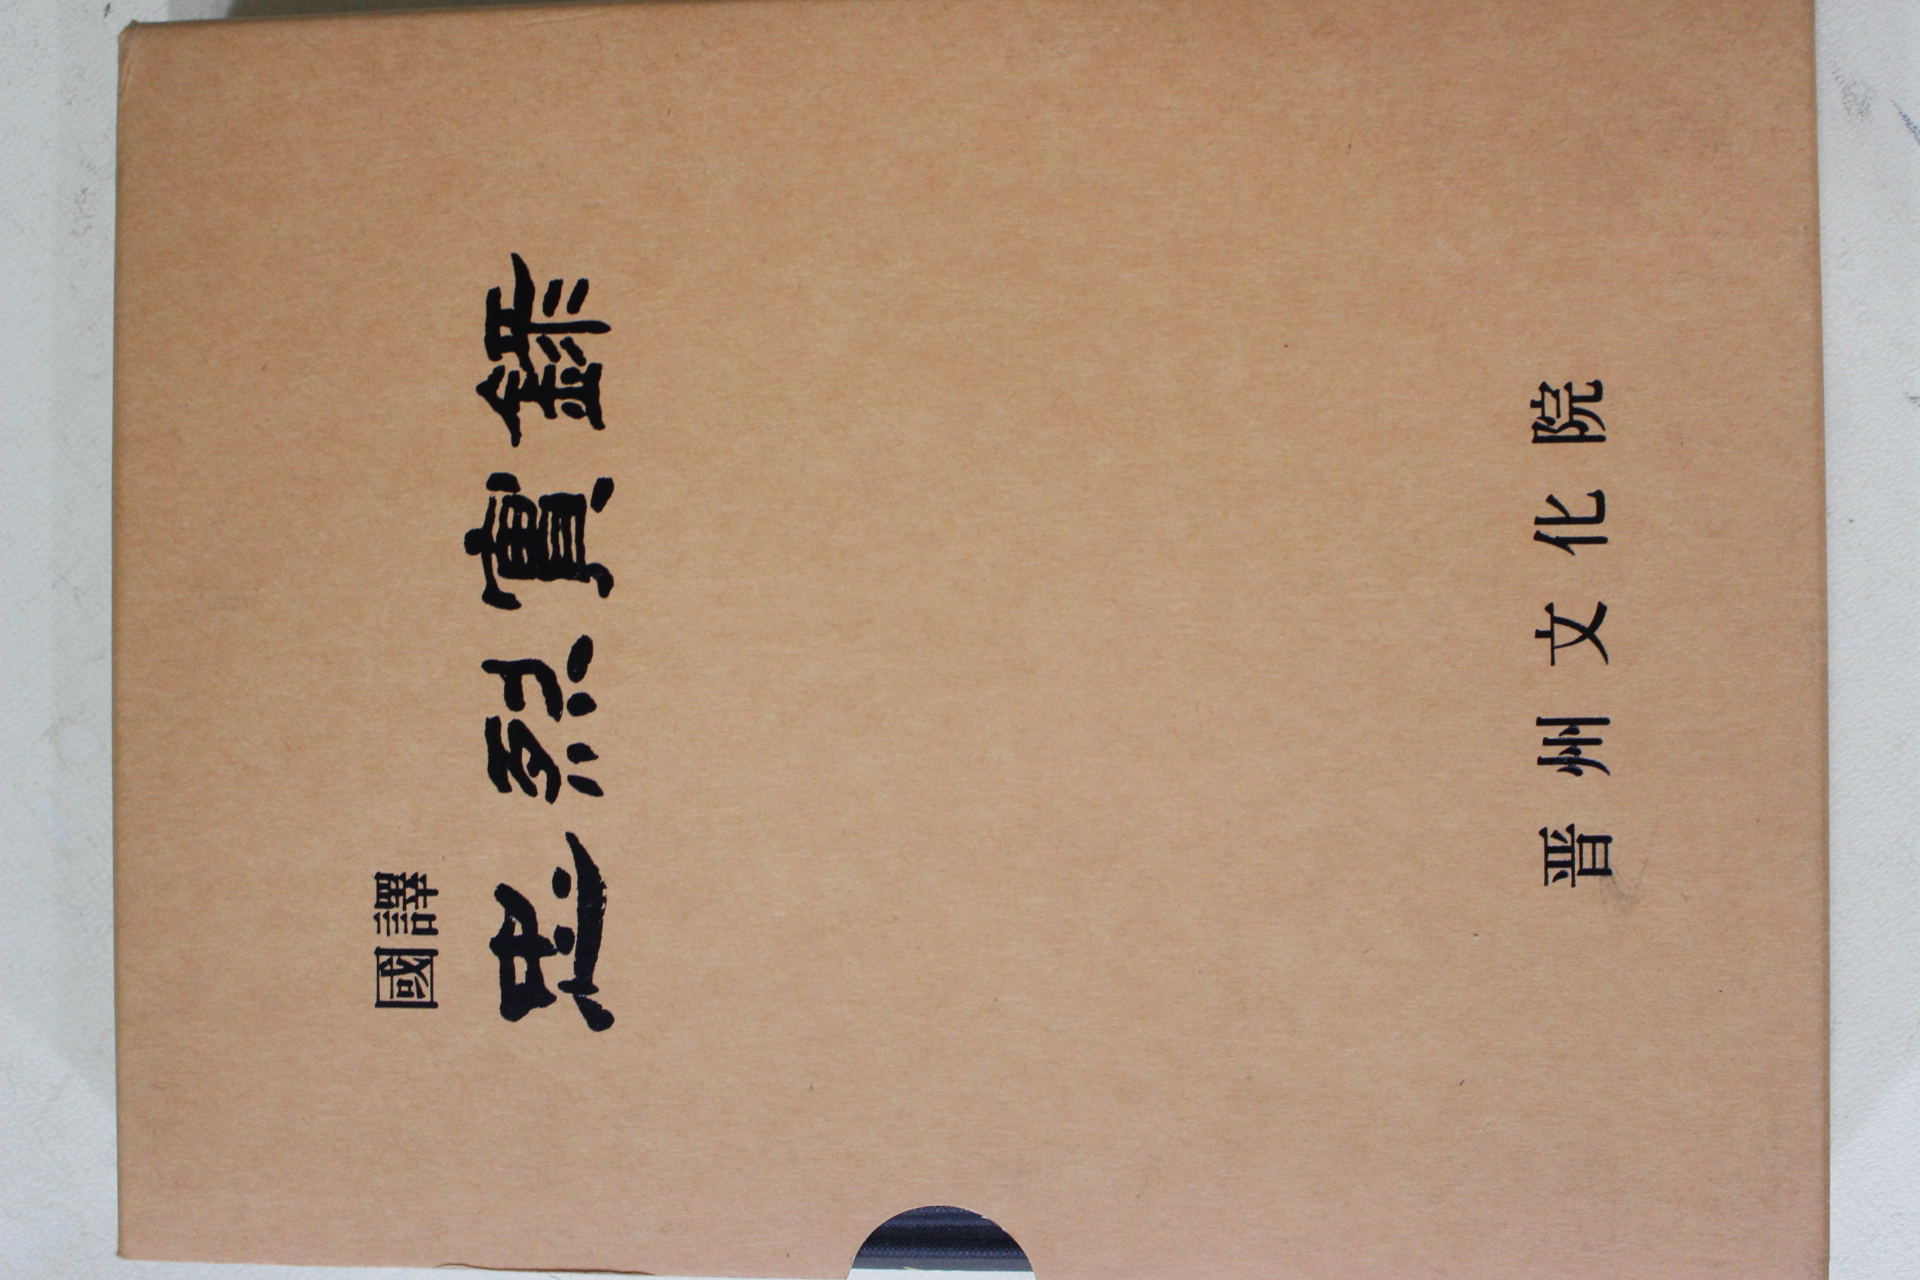 國譯
忠烈實錄
晋州文化院